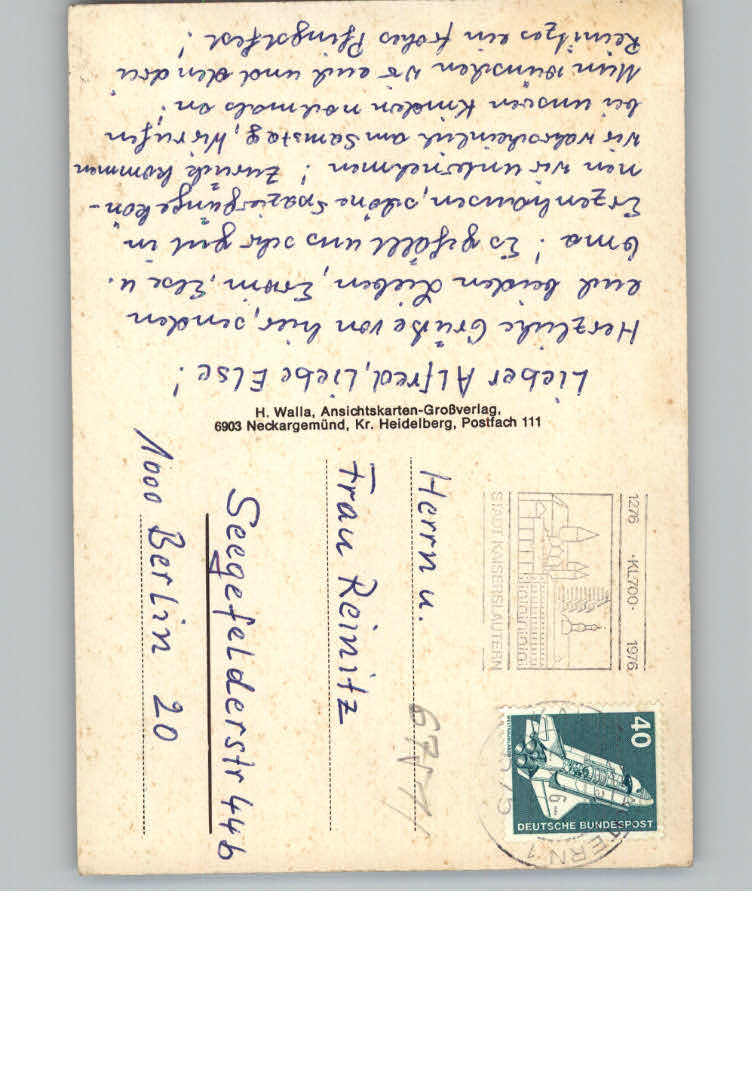 Lieber Alfred, Liebe Else!
Herzliche Grüße von hier, senden
euch beiden Lieben, Erwm, Else u.
Oma! Es gefällt uns sehr gut in
Erzenhausen, schöne Spaziergänge kön-
nen wir unternehmen! Zurück kommen
wir wahrscheinlich am Samstag, Wir rufen
bei unseren Kindern nochmals an!
Nun wünschen wir euch und den drei
Reinitzes ein frohes Pfingstfest!
H. Walla, Ansichtskarten-Großverlag,
6903 Neckargemünd, Kr. Heidelberg, Postfach 111
1276 ·KL700· 1976
STADT KAISERSLAUTERN
40
DEUTSCHE BUNDESPOST
Herrn u.
Frau Reinitz
Seegefelderstr 44b
1000 Berlin 20